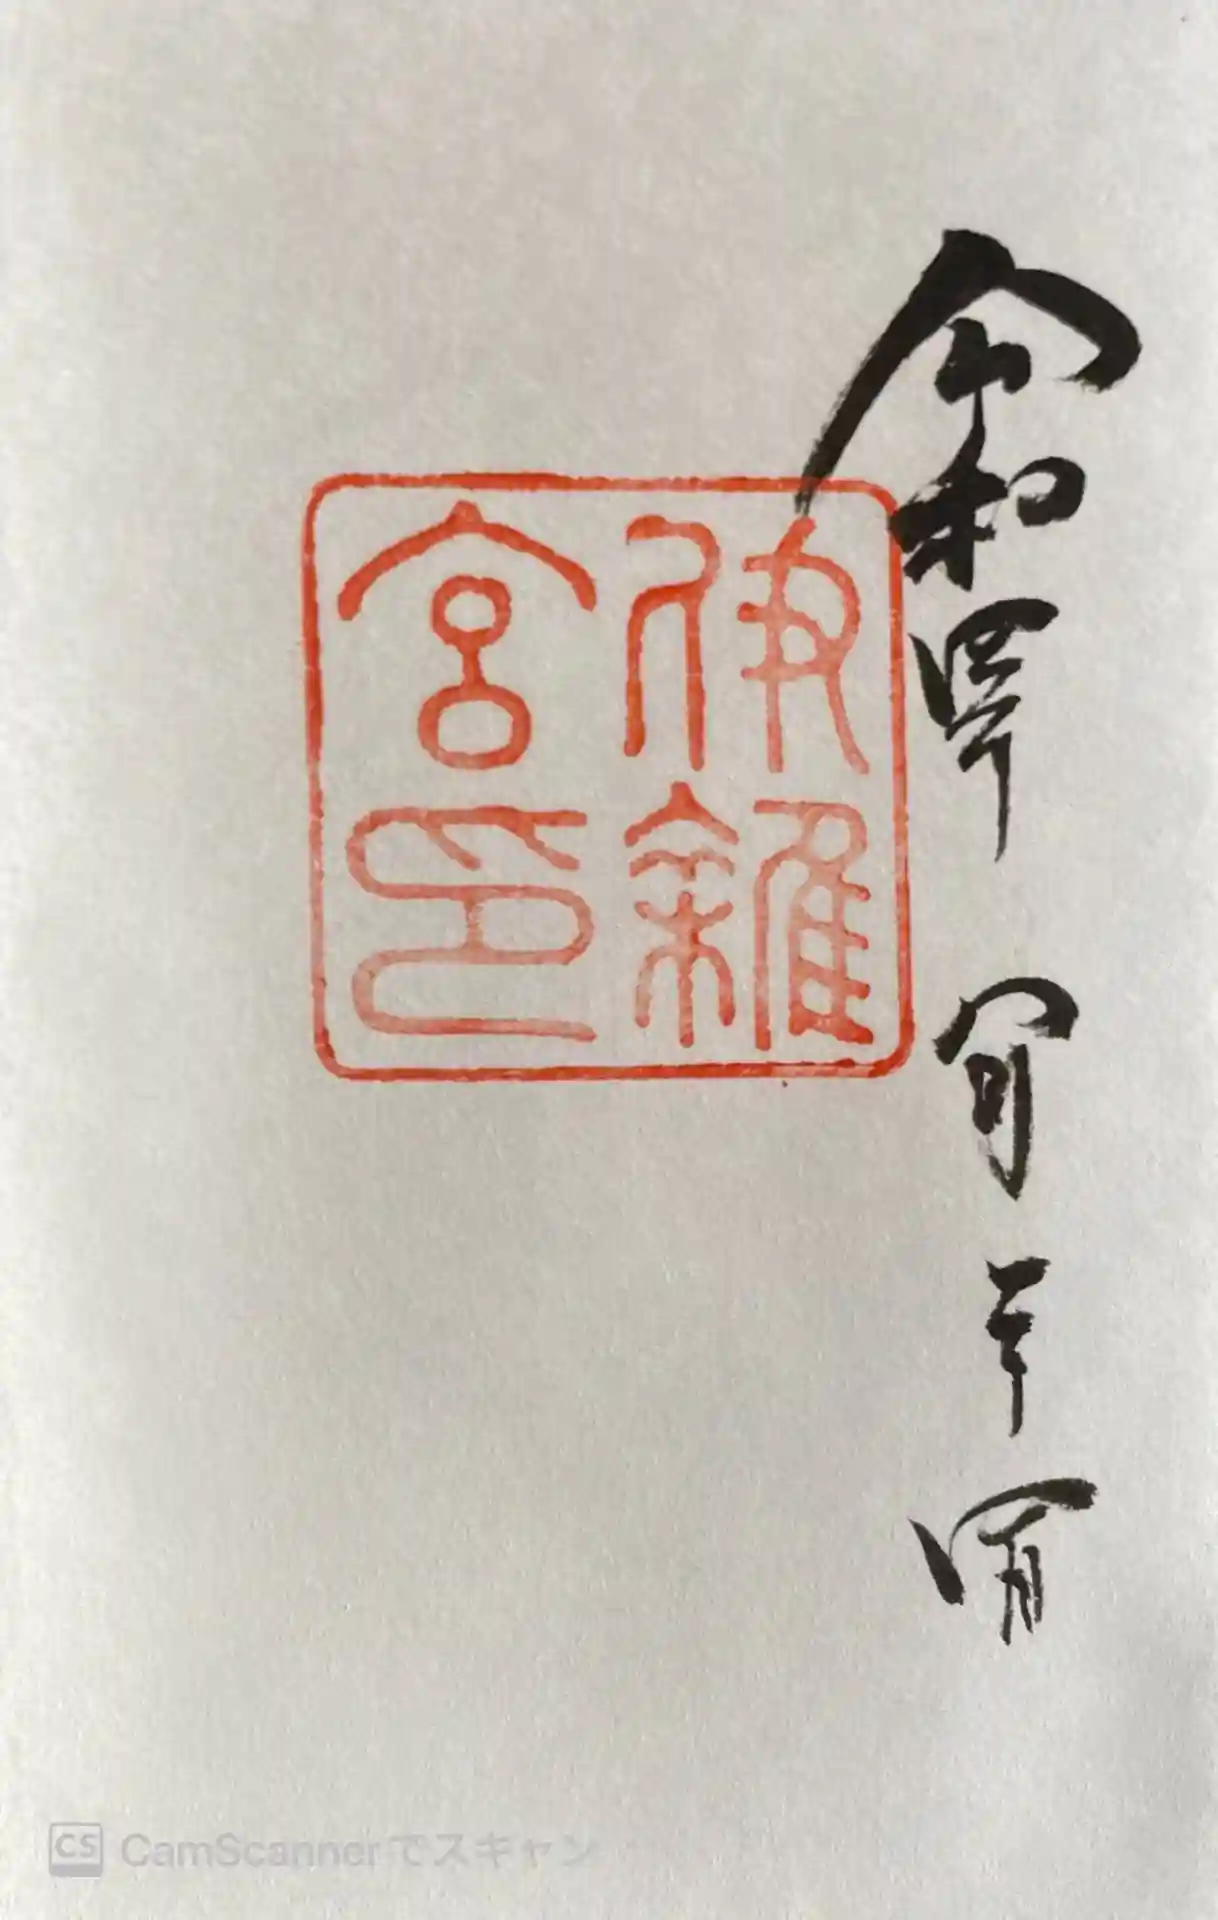 令和四年 六月二十四日
伊雜
宮印
CS CamScannerでスキャン